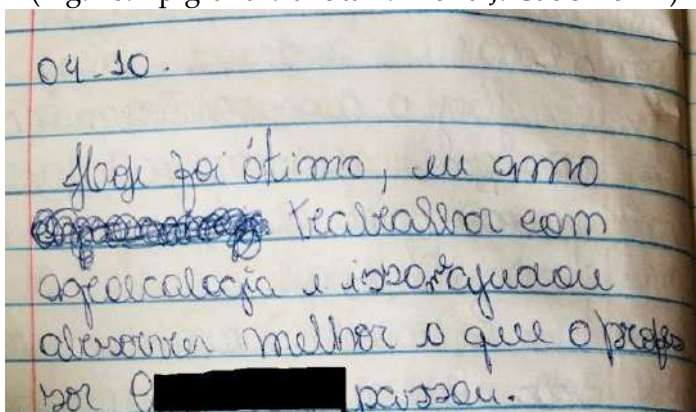 04-10.
Hoje foi ótimo, eu amo
trabalhar com
agroecologia e isso ajudou
absorver melhor o que o profes
sor passou.